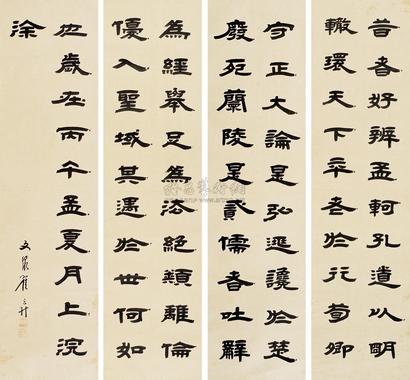 昔者好辨孟軻孔道以明
轍環天下卒老於行荀卿
守正大論是弘逃讒於楚
廢死蘭陵是貳儒者吐辭
為經舉足為法絕類離倫
優入聖域其遇於世何如
也歲在丙午孟夏月上浣
涂